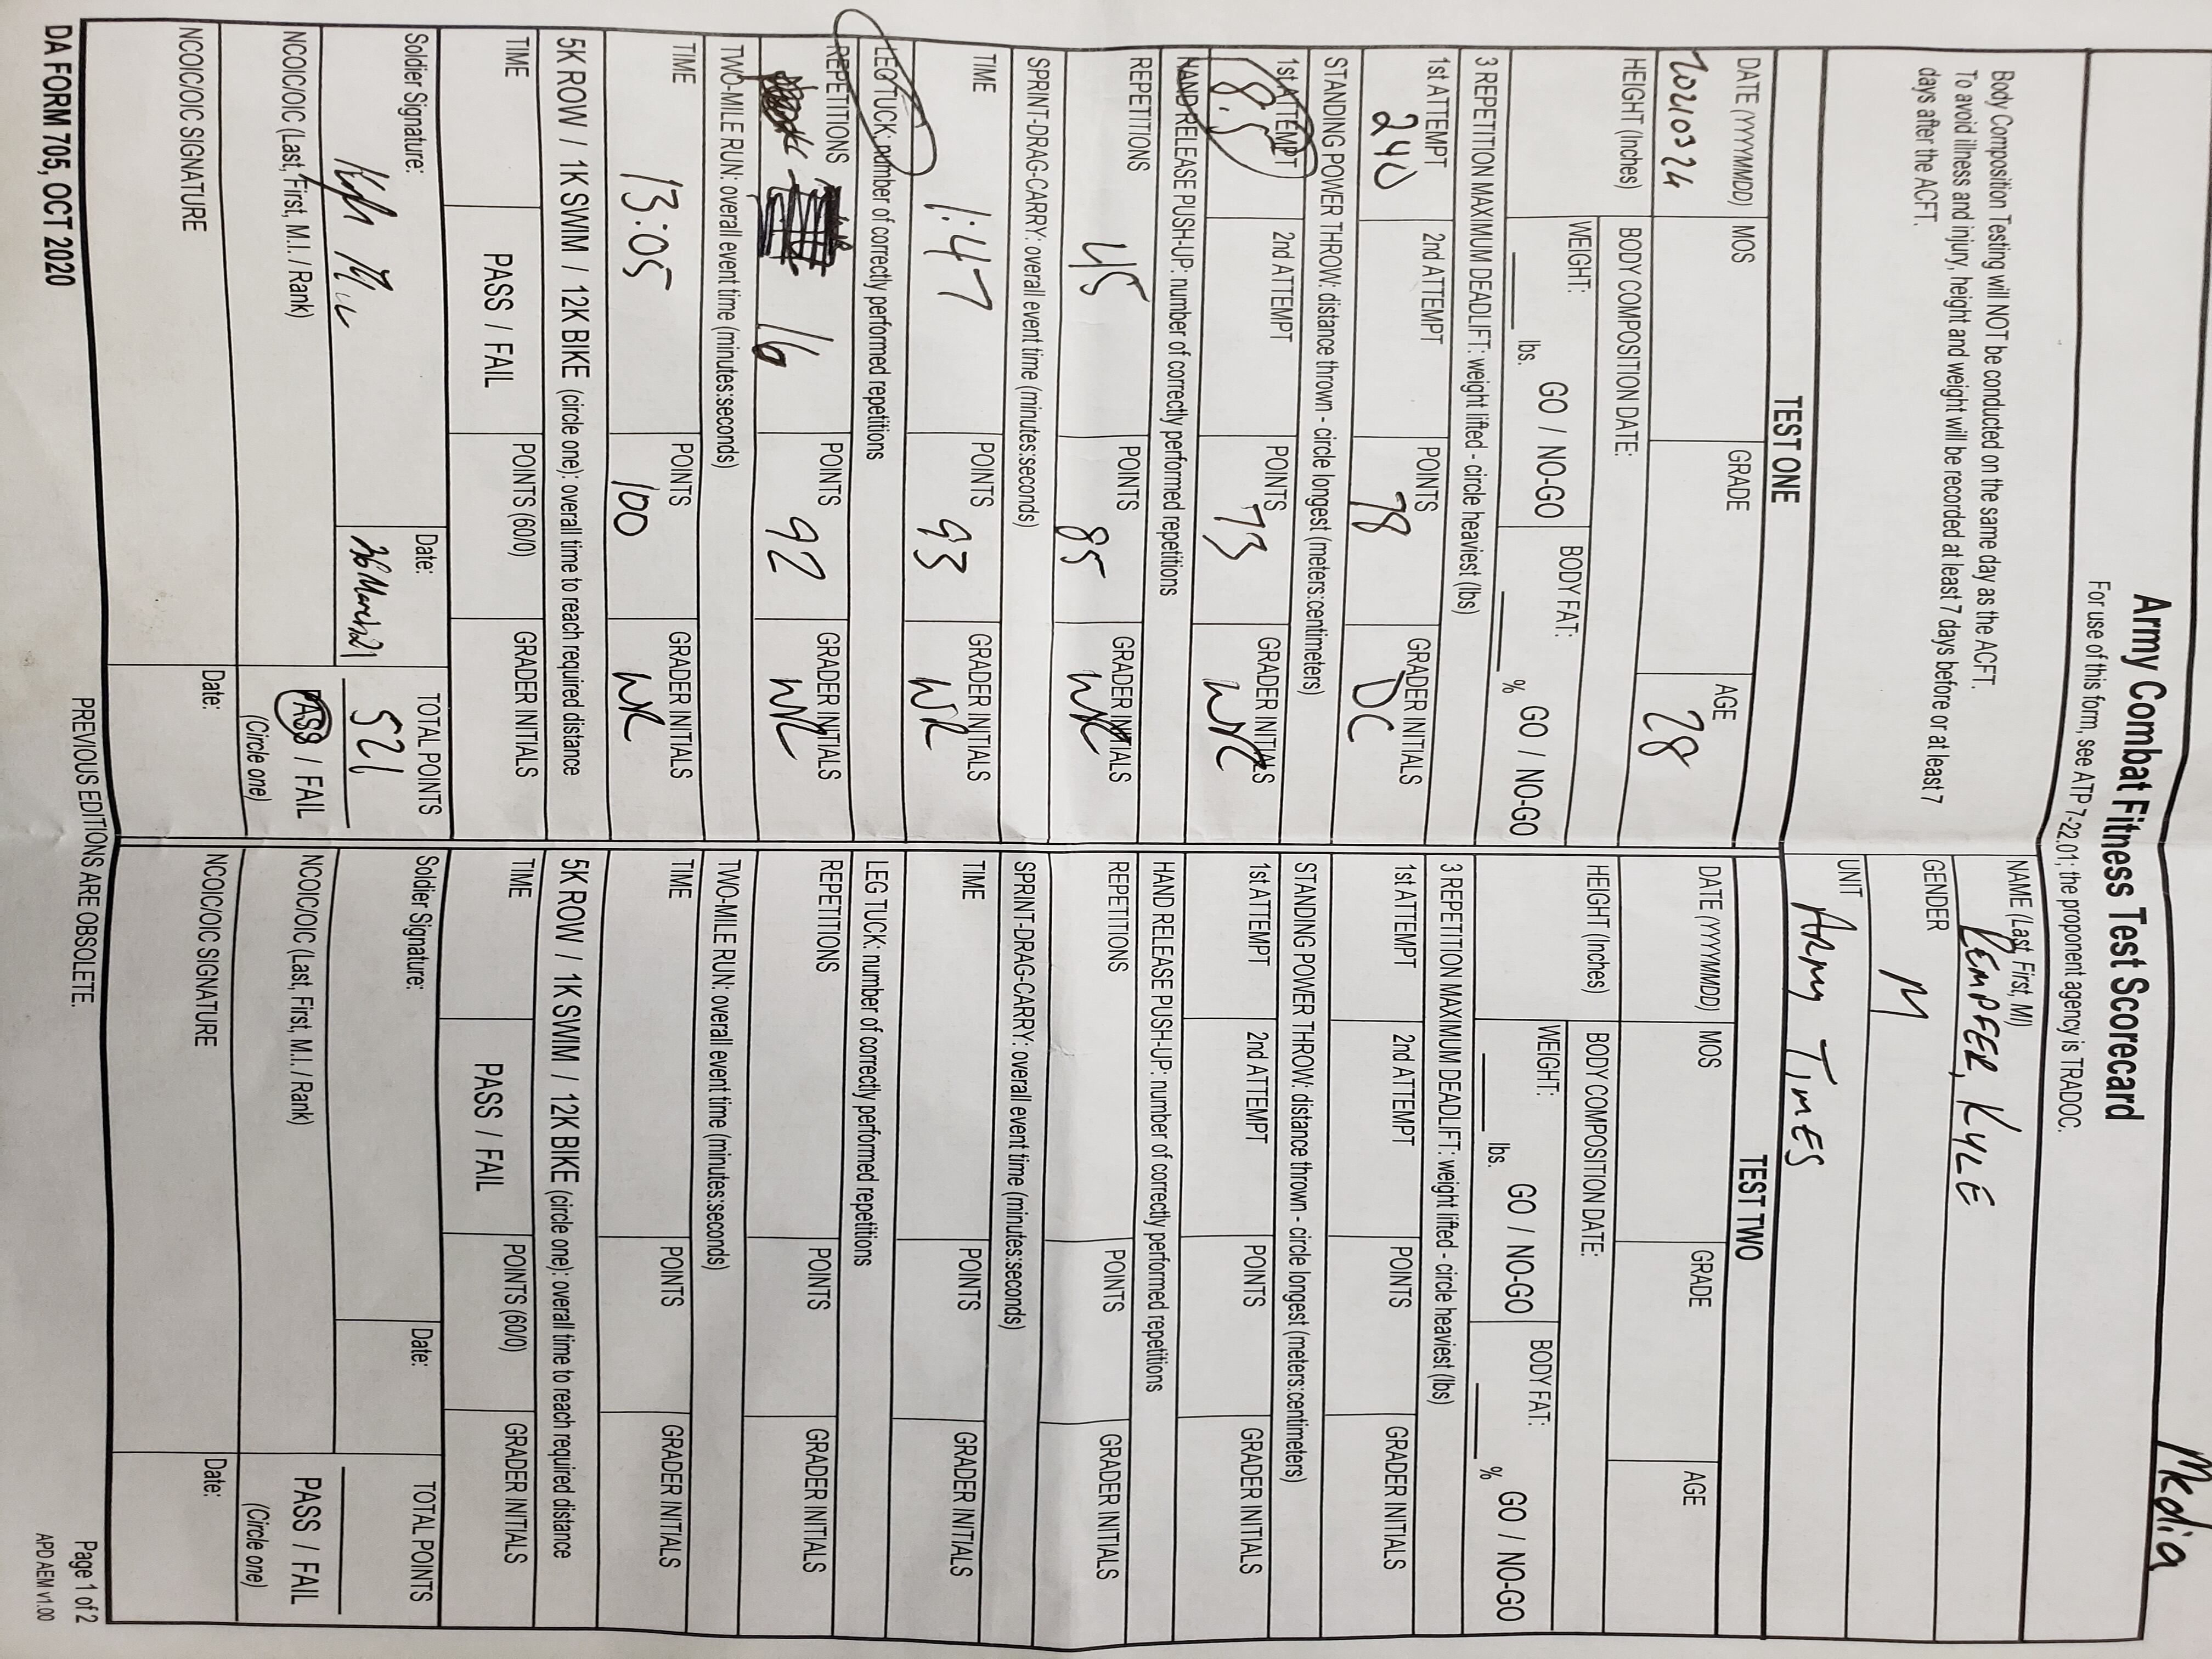 Media
Army Combat Fitness Test Scorecard
For use of this form, see ATP 7-22.01; the proponent agency is TRADOC.
Body Composition Testing will NOT be conducted on the same day as the ACFT.
To avoid illness and injury, height and weight will be recorded at least 7 days before or at least 7
days after the ACFT.
NAME (Last, First, MI)
REMPFER, KYLE
GENDER
M
UNIT
ARMY TIMES
TEST ONE
DATE (YYYYMMDD) MOS GRADE AGE
20210324 28
HEIGHT (Inches) BODY COMPOSITION DATE:
WEIGHT: BODY FAT:
____ lbs. GO / NO-GO ____ % GO / NO-GO
3 REPETITION MAXIMUM DEADLIFT: weight lifted - circle heaviest (lbs)
1st ATTEMPT 2nd ATTEMPT POINTS GRADER INITIALS
240 78 DC
STANDING POWER THROW: distance thrown - circle longest (meters:centimeters)
1st ATTEMPT 2nd ATTEMPT POINTS GRADER INITIALS
8.5 73 WR
HAND RELEASE PUSH-UP: number of correctly performed repetitions
REPETITIONS POINTS GRADER INITIALS
45 85 WR
SPRINT-DRAG-CARRY: overall event time (minutes:seconds)
TIME POINTS GRADER INITIALS
1:47 93 WR
LEG TUCK: number of correctly performed repetitions
REPETITIONS POINTS GRADER INITIALS
16 92 WR
TWO-MILE RUN: overall event time (minutes:seconds)
TIME POINTS GRADER INITIALS
13:05 100 WR
5K ROW / 1K SWIM / 12K BIKE (circle one): overall time to reach required distance
TIME PASS / FAIL POINTS (60/0) GRADER INITIALS
Soldier Signature: Date: TOTAL POINTS
26 March 21 521
NCOIC/OIC (Last, First, M.I. / Rank) PASS / FAIL
(Circle one)
NCOIC/OIC SIGNATURE Date:
TEST TWO
DATE (YYYYMMDD) MOS GRADE AGE
HEIGHT (Inches) BODY COMPOSITION DATE:
WEIGHT: BODY FAT:
____ lbs. GO / NO-GO ____ % GO / NO-GO
3 REPETITION MAXIMUM DEADLIFT: weight lifted - circle heaviest (lbs)
1st ATTEMPT 2nd ATTEMPT POINTS GRADER INITIALS
STANDING POWER THROW: distance thrown - circle longest (meters:centimeters)
1st ATTEMPT 2nd ATTEMPT POINTS GRADER INITIALS
HAND RELEASE PUSH-UP: number of correctly performed repetitions
REPETITIONS POINTS GRADER INITIALS
SPRINT-DRAG-CARRY: overall event time (minutes:seconds)
TIME POINTS GRADER INITIALS
LEG TUCK: number of correctly performed repetitions
REPETITIONS POINTS GRADER INITIALS
TWO-MILE RUN: overall event time (minutes:seconds)
TIME POINTS GRADER INITIALS
5K ROW / 1K SWIM / 12K BIKE (circle one): overall time to reach required distance
TIME PASS / FAIL POINTS (60/0) GRADER INITIALS
Soldier Signature: Date: TOTAL POINTS
NCOIC/OIC (Last, First, M.I. / Rank) PASS / FAIL
(Circle one)
NCOIC/OIC SIGNATURE Date:
DA FORM 705, OCT 2020 PREVIOUS EDITIONS ARE OBSOLETE. Page 1 of 2
APD AEM v1.00